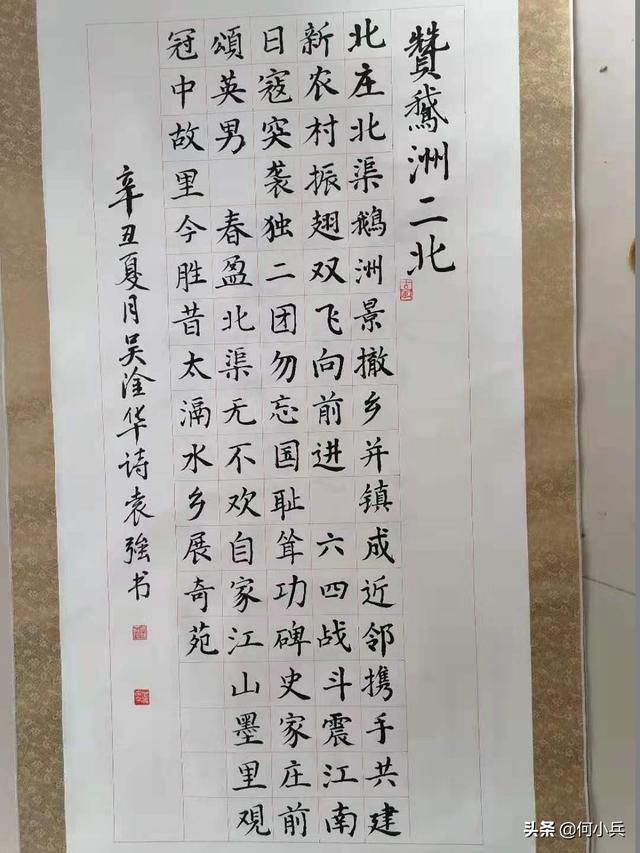 贊鵞洲二北
北庄北渠鵝洲景撤乡并镇成近邻携手共建
新农村振翅双飞向前进 六四战斗震江南
日寇突袭独二团勿忘国耻耸功碑史家庄前
頌英男 春盈北渠无不欢自家江山墨里观
冠中故里今胜昔太滆水乡展奇苑
辛丑夏月吴淦华诗袁強书
头条 @何小兵